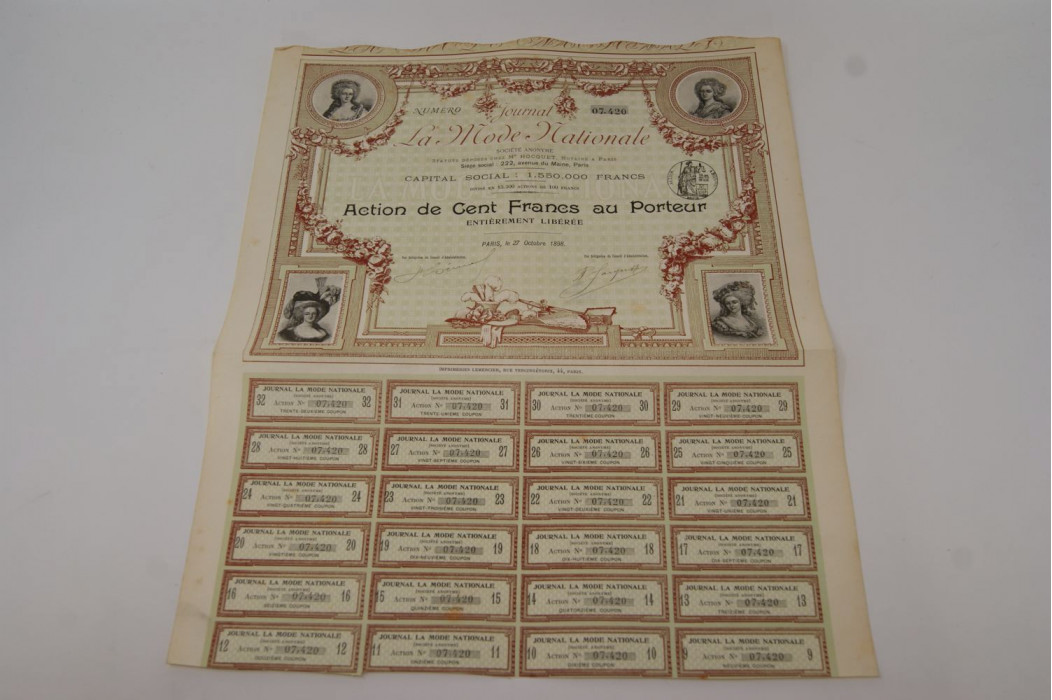 NUMÉRO Journal 07.420
La Mode Nationale
SOCIÉTÉ ANONYME
STATUTS DÉPOSÉS CHEZ Me HOCQUET, NOTAIRE À PARIS
Siège social : 222, avenue du Maine, Paris
CAPITAL SOCIAL : 1.550.000 FRANCS
Action de Cent Francs au Porteur
ENTIÈREMENT LIBÉRÉE
PARIS, le 27 Octobre 1898.
IMPRIMERIE LEMERCIER, RUE VERCINGÉTORIX, 44, PARIS.
JOURNAL LA MODE NATIONALE
(SOCIÉTÉ ANONYME)
32 ACTION No 07.420 32
TRENTE-DEUXIÈME COUPON
JOURNAL LA MODE NATIONALE
(SOCIÉTÉ ANONYME)
31 ACTION No 07.420 31
TRENTE-UNIÈME COUPON
JOURNAL LA MODE NATIONALE
(SOCIÉTÉ ANONYME)
30 ACTION No 07.420 30
TRENTIÈME COUPON
JOURNAL LA MODE NATIONALE
(SOCIÉTÉ ANONYME)
29 ACTION No 07.420 29
VINGT-NEUVIÈME COUPON
JOURNAL LA MODE NATIONALE
(SOCIÉTÉ ANONYME)
28 ACTION No 07.420 28
VINGT-HUITIÈME COUPON
JOURNAL LA MODE NATIONALE
(SOCIÉTÉ ANONYME)
27 ACTION No 07.420 27
VINGT-SEPTIÈME COUPON
JOURNAL LA MODE NATIONALE
(SOCIÉTÉ ANONYME)
26 ACTION No 07.420 26
VINGT-SIXIÈME COUPON
JOURNAL LA MODE NATIONALE
(SOCIÉTÉ ANONYME)
25 ACTION No 07.420 25
VINGT-CINQUIÈME COUPON
JOURNAL LA MODE NATIONALE
(SOCIÉTÉ ANONYME)
24 ACTION No 07.420 24
VINGT-QUATRIÈME COUPON
JOURNAL LA MODE NATIONALE
(SOCIÉTÉ ANONYME)
23 ACTION No 07.420 23
VINGT-TROISIÈME COUPON
JOURNAL LA MODE NATIONALE
(SOCIÉTÉ ANONYME)
22 ACTION No 07.420 22
VINGT-DEUXIÈME COUPON
JOURNAL LA MODE NATIONALE
(SOCIÉTÉ ANONYME)
21 ACTION No 07.420 21
VINGT-UNIÈME COUPON
JOURNAL LA MODE NATIONALE
(SOCIÉTÉ ANONYME)
20 ACTION No 07.420 20
VINGTIÈME COUPON
JOURNAL LA MODE NATIONALE
(SOCIÉTÉ ANONYME)
19 ACTION No 07.420 19
DIX-NEUVIÈME COUPON
JOURNAL LA MODE NATIONALE
(SOCIÉTÉ ANONYME)
18 ACTION No 07.420 18
DIX-HUITIÈME COUPON
JOURNAL LA MODE NATIONALE
(SOCIÉTÉ ANONYME)
17 ACTION No 07.420 17
DIX-SEPTIÈME COUPON
JOURNAL LA MODE NATIONALE
(SOCIÉTÉ ANONYME)
16 ACTION No 07.420 16
SEIZIÈME COUPON
JOURNAL LA MODE NATIONALE
(SOCIÉTÉ ANONYME)
15 ACTION No 07.420 15
QUINZIÈME COUPON
JOURNAL LA MODE NATIONALE
(SOCIÉTÉ ANONYME)
14 ACTION No 07.420 14
QUATORZIÈME COUPON
JOURNAL LA MODE NATIONALE
(SOCIÉTÉ ANONYME)
13 ACTION No 07.420 13
TREIZIÈME COUPON
JOURNAL LA MODE NATIONALE
(SOCIÉTÉ ANONYME)
12 ACTION No 07.420 12
DOUZIÈME COUPON
JOURNAL LA MODE NATIONALE
(SOCIÉTÉ ANONYME)
11 ACTION No 07.420 11
ONZIÈME COUPON
JOURNAL LA MODE NATIONALE
(SOCIÉTÉ ANONYME)
10 ACTION No 07.420 10
DIXIÈME COUPON
JOURNAL LA MODE NATIONALE
(SOCIÉTÉ ANONYME)
9 ACTION No 07.420 9
NEUVIÈME COUPON